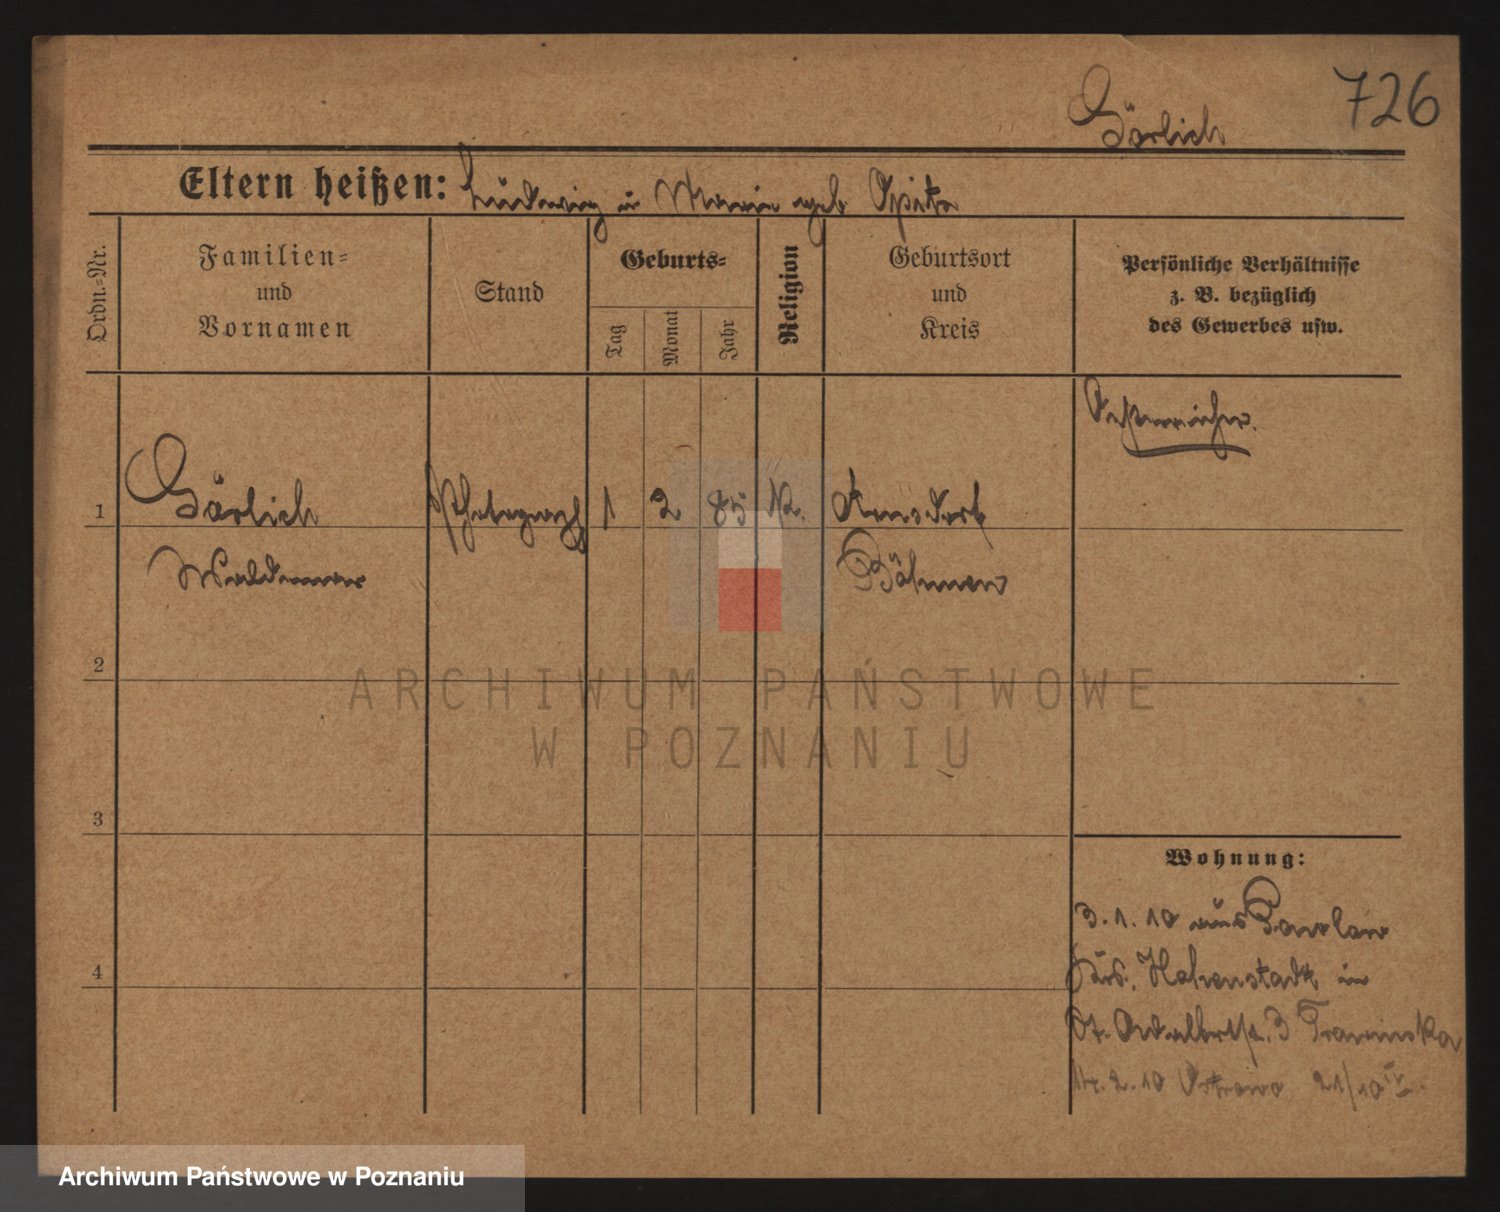 726
Görlich
Eltern heißen: Ludwig u Marie geb Opitz
Ordn.-Nr.
Familien-
und
Vornamen
Stand
Geburts-
Tag
Monat
Jahr
Religion
Geburtsort
und
Kreis
Persönliche Verhältnisse
z. B. bezüglich
des Gewerbes usw.
Oesterreicher.
1
Görlich Photograph 1 2 85 K. Arnsdorf
Waldemar Böhmen
2
3
4
Wohnung:
3.1.10 aus
Hohenstadt in
St. Adalbertstr. 3
14.2.10 Ostrowo 21/10 IV.
ARCHIWUM PAŃSTWOWE
W POZNANIU
Archiwum Państwowe w Poznaniu